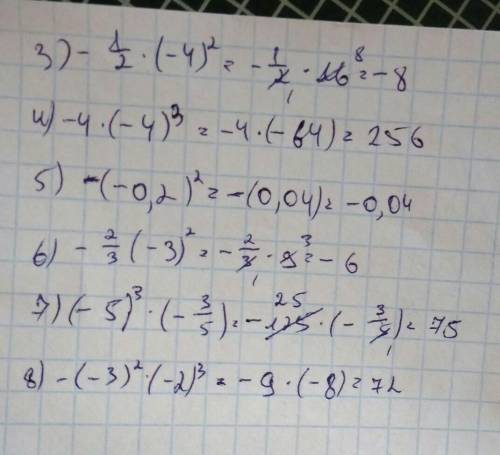 3) - 1/2 · (-4)² = - 1/2 · 16 ⁸ = -8
4) -4 · (-4)³ = -4 · (-64) = 256
5) -(-0,2)² = -(0,04) = -0,04
6) - 2/3 (-3)² = - 2/3 · 9 ³ = - 6
7) (-5)³ · (- 3/5) = -125 25 · (- 3/5) = 75
8) -(-3)² · (-2)³ = -9 · (-8) = 72